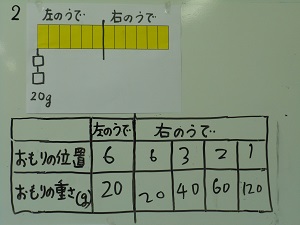 2
左のうで 右のうで
20g
左のうで 右のうで
おもりの位置 6 6 3 2 1
おもりの重さ(g) 20 20 40 60 120